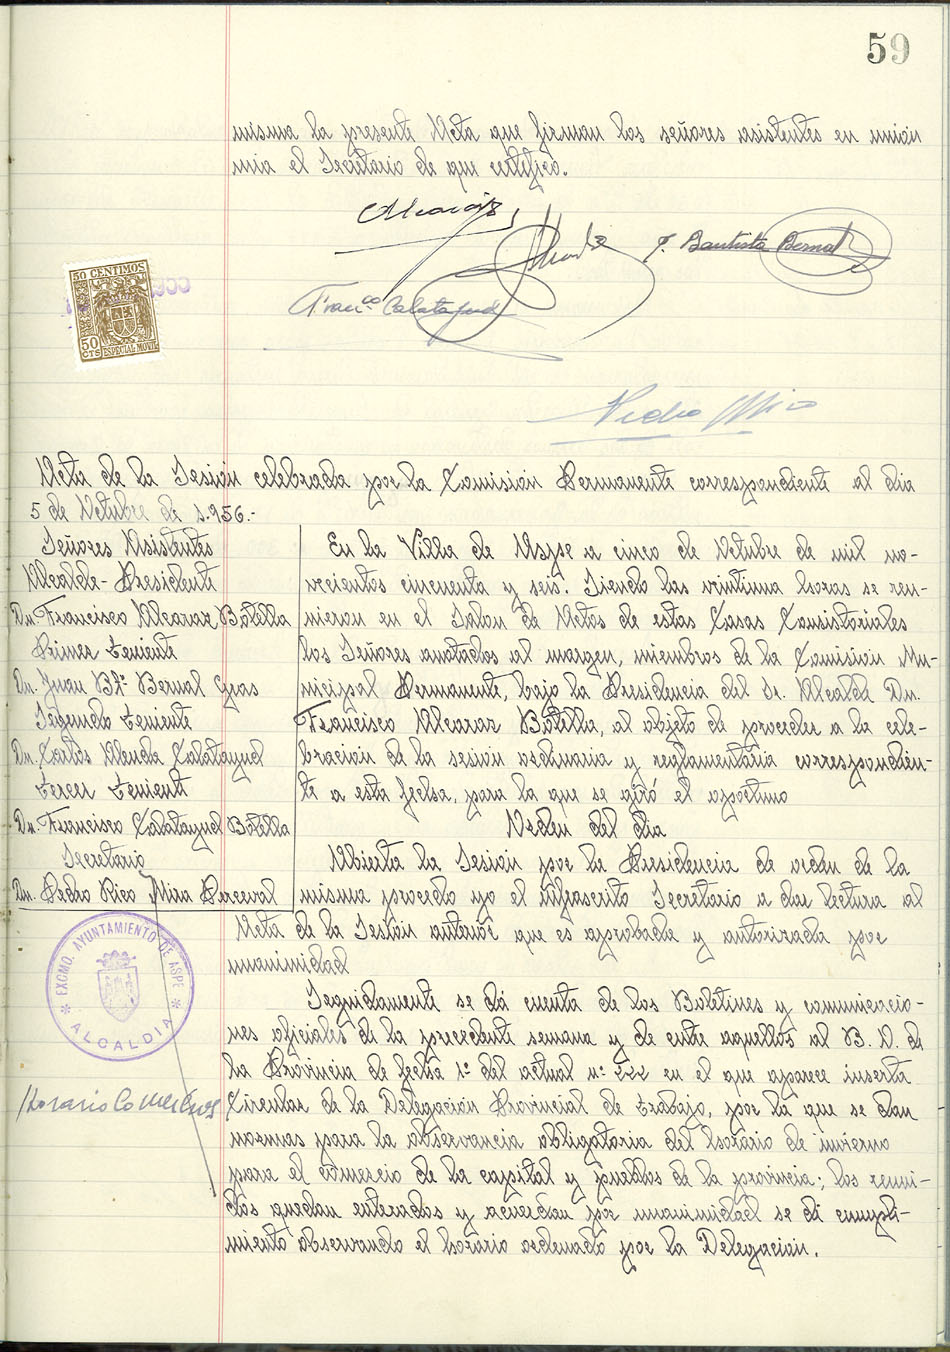 59
misma la presente Acta que firman los señores asistentes en union
mia el Secretario de que certifico.
J. Bautista Bernal
Franco Calatayud
Pedro Rico
50 CENTIMOS
50
CTS ESPECIAL MOVIL
Acta de la Sesion celebrada por la Comision Permanente correspondiente al dia
5 de Octubre de 1.956.-
Señores Asistentes
Alcalde-Presidente
Dn. Francisco Alcaraz Botella
Primer Teniente
Dn. Juan Btª Bernal Gras
Segundo Teniente
Dn. Carlos Alenda Calatayud
Tercer Teniente
Dn. Francisco Calatayud Botella
Secretario
Dn. Pedro Rico Mira Perceval
EXCMO. AYUNTAMIENTO DE ASPE
ALCALDIA
Horario Comercios
En la Villa de Aspe a cinco de Octubre de mil no-
vecientos cincuenta y seis. Siendo las vintiuna horas se reu-
nieron en el Salon de Actos de estas Casas Consistoriales
los Señores anotados al margen, miembros de la Comision Mu-
nicipal Permanente, bajo la Presidencia del Sr. Alcalde Dn.
Francisco Alcaraz Botella, al objeto de proceder a la cele-
bracion de la sesion ordinaria y reglamentaria correspondien-
te a esta fecha, para la que se giró el oportuno
Orden del dia
Abierta la Sesion por la Presidencia de orden de la
misma procedo yo el infrascrito Secretario a dar lectura al
Acta de la Sesion anterior que es aprobada y autorizada por
unanimidad
Seguidamente se dá cuenta de los Boletines y comunicacio-
nes oficiales de la precedente semana y de entre aquellos al B. O. de
la Provincia de fecha 1º del actual nº 222 en el que aparece inserta
Circular de la Delegacion Provincial de Trabajo, por la que se dan
normas para la observancia obligatoria del horario de invierno
para el comercio de la capital y pueblos de la provincia; los reuni-
dos quedan enterados y acuerdan por unanimidad se dé cumpli-
miento observando el horario ordenado por la Delegacion.